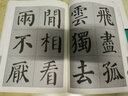 飛盡孤
雲獨去
閒相看
兩不厭